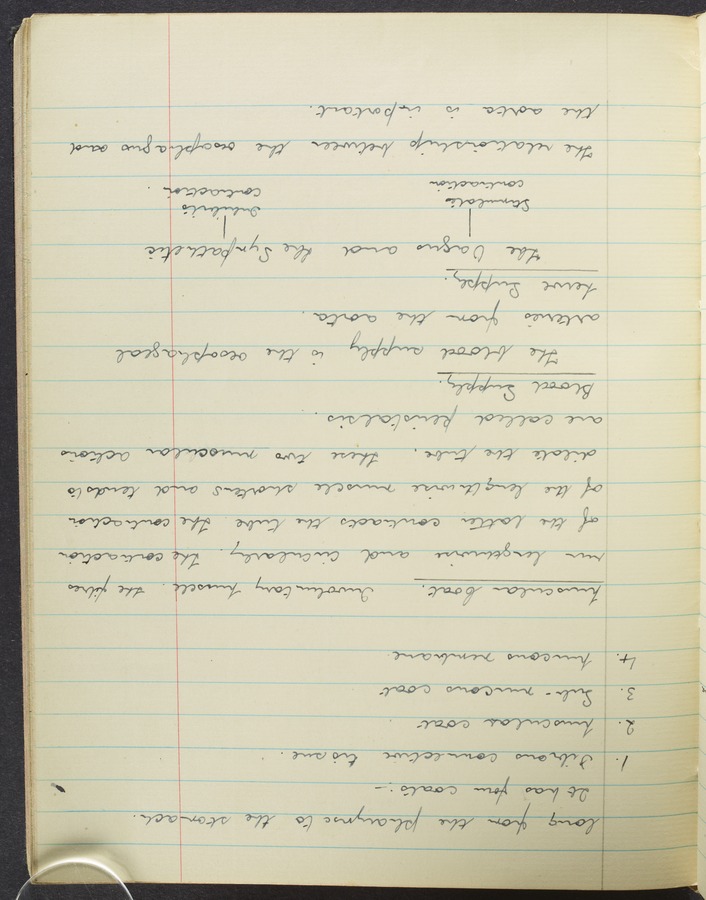 long from the pharynx to the stomach.
It has four coats :-
1. Fibrous connective tissue.
2. Muscular coat.
3. Sub-mucous coat
4. Mucous membrane.
Muscular Coat. Involuntary muscle. The fibres
run lengthwise and circularly. The contraction
of the latter contracts the tube. The contraction
of the lengthwise muscle shortens and tends to
dilate the tube. These two muscular actions
are called peristalsis.
Blood Supply.
The blood supply is the oesophageal
arteries from the aorta.
Nerve Supply.
The Vagus and the Sympathetic
Stimulates Inhibits
contraction contraction.
The relationship between the oesophagus and
the aorta is important.